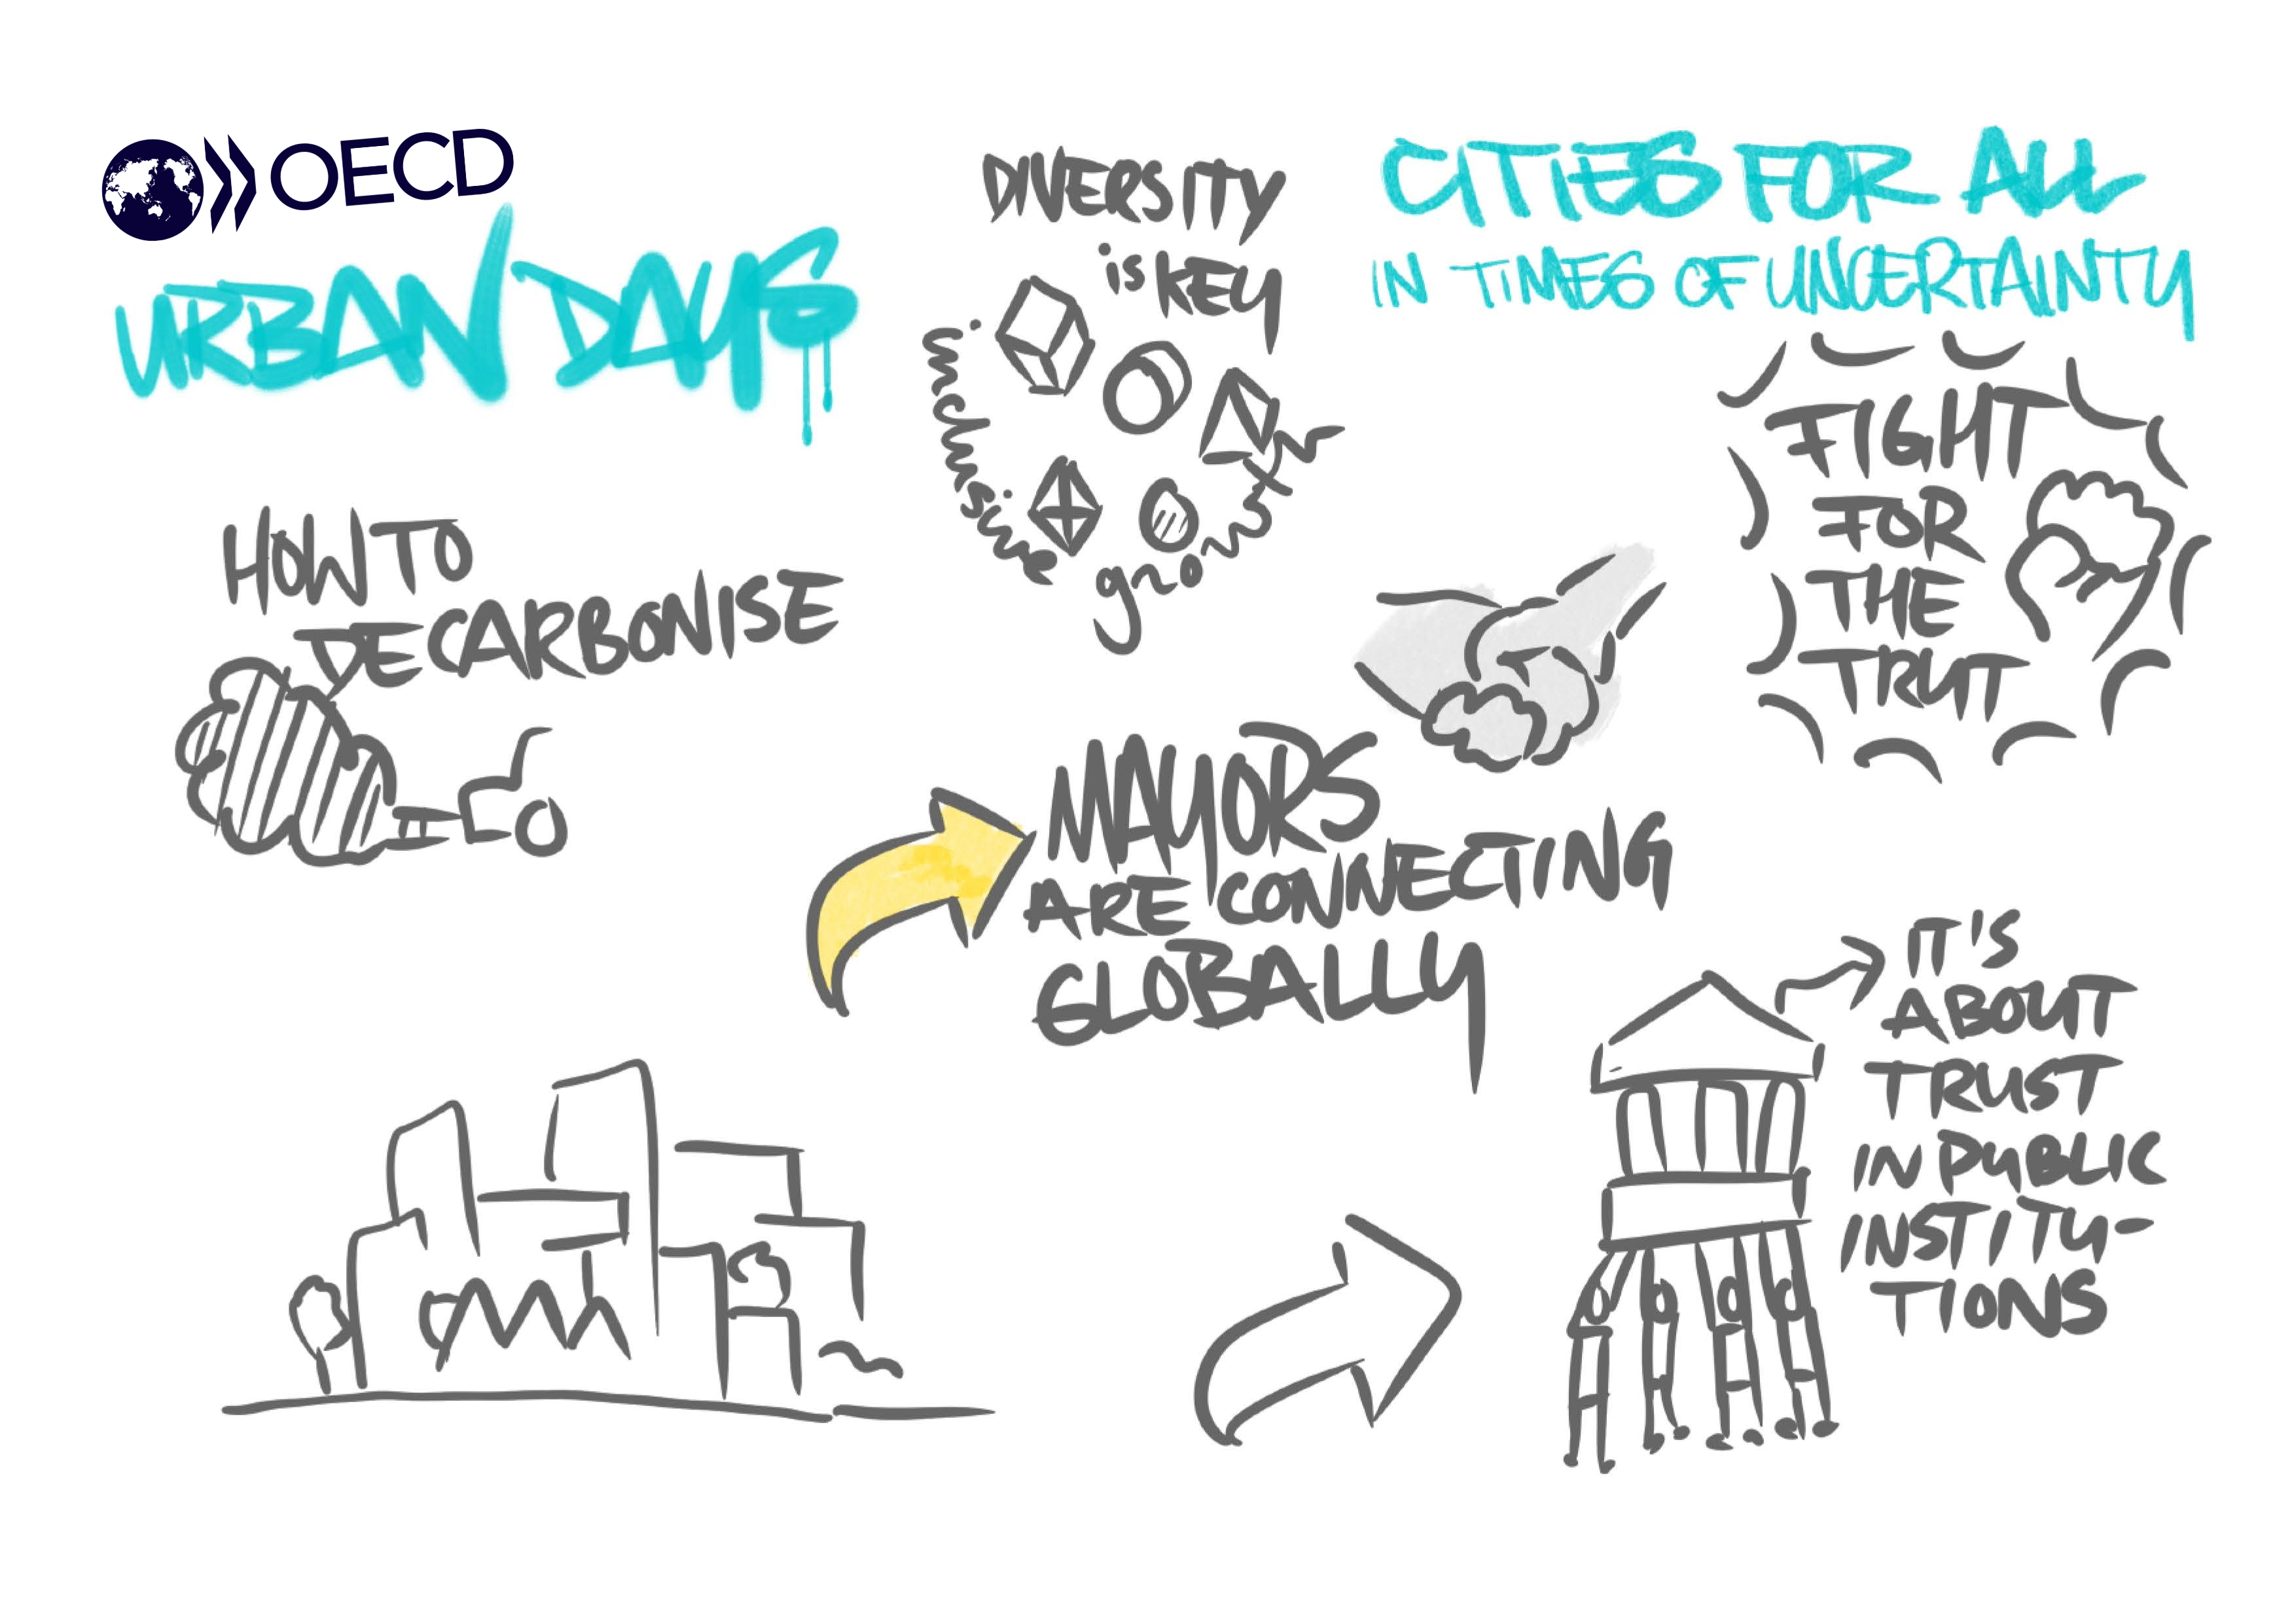 OECD
URBAN DAYS
DIVERSITY
is KEY
inclusive growth
CITIES FOR ALL
IN TIMES OF UNCERTAINTY
FIGHT
FOR
THE
TRUT
HOW TO
DECARBONISE
MAYORS
ARE CONNECTING
GLOBALLY
IT'S
ABOUT
TRUST
IN PUBLIC
INSTITU-
TIONS